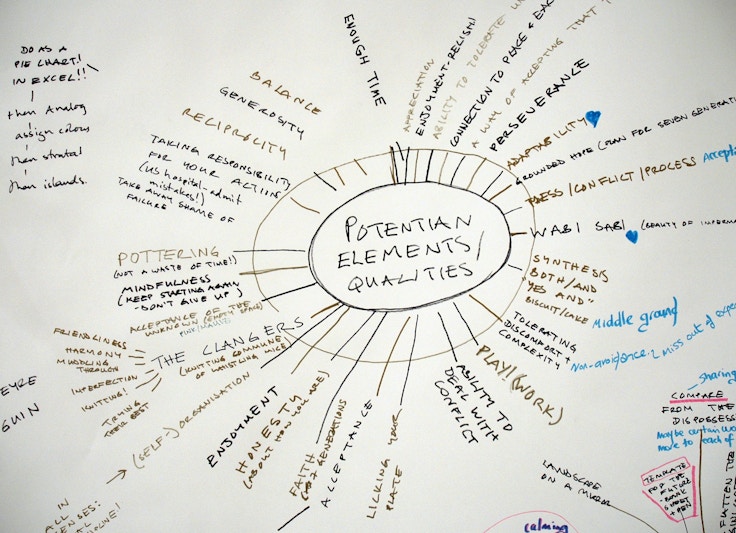 DO AS A
PIE CHART!
IN EXCEL!!
then Analog
assign colous
then strata!
then islands.
BALANCE
GENEROSITY
RECIPROCITY
TAKING RESPONSIBILITY
FOR YOUR ACTIONS
(US hospital-admit
mistakes!)
TAKE AWAY SHAME OF
FAILURE
ENOUGH TIME
APPRECIATION
ENJOYMENT-RELISH!
ABILITY TO TOLERATE
CONNECTION TO PLACE &
A WAY OF ACCEPTING THAT
PERSEVERANCE
ADAPTABILITY
GROUNDED HOPE (PLAN FOR SEVEN
/CONFLICT/PROCESS
WABI SABI (BEAUTY OF
SYNTHESIS
BOTH/AND
"YES AND"
BISCUIT/CAKE
Middle ground
TOLERATING
DISCOMFORT +
COMPLEXITY
Non-avoidence: miss out of
PLAY! (WORK)
ABILITY TO
DEAL WITH
CONFLICT
POTENTIAN
ELEMENTS/
QUALITIES
POTTERING
(NOT A WASTE OF TIME!)
MINDFULNESS
(KEEP STARTING AGAIN
-DON'T GIVE UP)
ACCEPTANCE OF THE
UNKNOWN (EMPTY SPACE)
THE CLANGERS
(KNITTING COMMUNE
OF WHISTLING MICE)
FRIENDLINESS
HARMONY
MUDDLING
THROUGH
IMPERFECTION
KNITTING!
TRYING
THEIR BEST
(SELF-) ORGANISATION
ENJOYMENT
HONESTY
(ABOUT HOW YOU ARE)
FAITH
GENERATIONS
ACCEPTANCE
LICKING YOUR
PLATE
EYRE
GUIN
IN
sharing
COMPARE
FROM THE
DISPOSSESS
maybe certain
move to each of
TEMPLATE
FOR THE
FUTURE
-BANK
SHEET
+ PEN
FLATTEN THE
LANDSCAPE
ON A MIRROR
calming